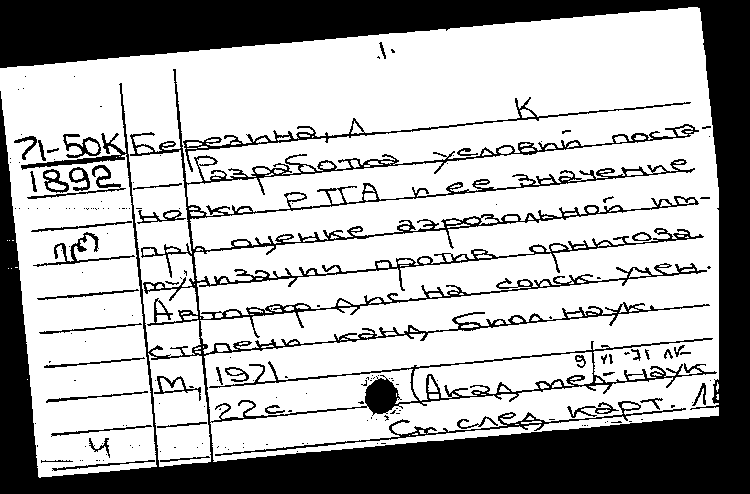 1.
71-50К Березина, Л К
1892 Разработка условий поста-
новки РТГА и ее значение
при оценке аэрозольной им-
мунизации против орнитоза.
Автореф. дис. на соиск. учен.
степени канд. биол. наук.
М., 1971.
9/VI-71 ЛК
22 с. (Акад. мед. наук
См. след. карт.
4